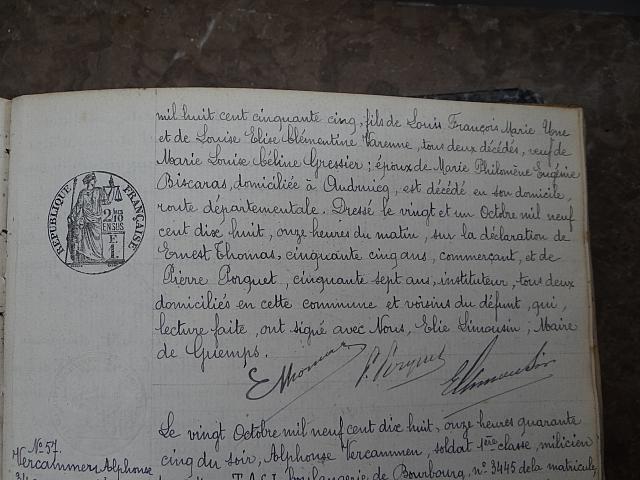 mil huit cent cinquante cinq, fils de Louis François Marie Une
et de Louise Elise Clémentine Varenne, tous deux décédés, veuf de
Marie Louise Céline Gressier ; époux de Marie Philomène Eugénie
Biscaras, domiciliée à Audruicq, est décédé en son domicile,
route départementale. Dressé le vingt et un Octobre mil neuf
cent dix huit, onze heures du matin, sur la déclaration de
Ernest Thomas, cinquante cinq ans, commerçant, et de
Pierre Porquet, cinquante sept ans, instituteur, tous deux
domiciliés en cette commune et voisins du défunt, qui,
lecture faite, ont signé avec Nous, Elie Limousin ; Maire
de Guemps.
RÉPUBLIQUE FRANÇAISE
2/10
EN SUS
F
1.
EThomas P. Porquet ELimousin
N° 57.
Vercammen Alphonse
Le vingt Octobre mil neuf cent dix huit, onze heures quarante
cinq du soir, Alphonse Vercammen, soldat 1ère classe, milicien
boulangerie de Bourbourg, n° 3445 de la matricule,